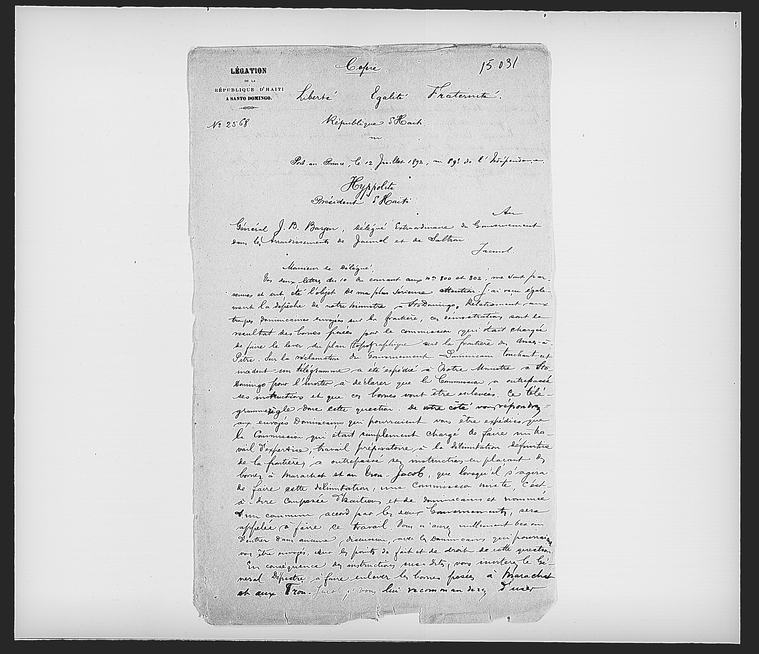 LÉGATION
DE LA
RÉPUBLIQUE D'HAITI
A SANTO DOMINGO.
Copie
15031
Liberté Egalité Fraternité.
Nº 2568
République d'Haiti
Port au Prince, le 12 Juillet 1892, an 89e de l'Indépendance
Hyppolite
Président d'Haiti
Au
Général J. B. Délégué Extraordinaire du Gouvernement
dans les Arrondissements de Jacmel et de
Jacmel
Monsieur le Délégué,
Vos deux lettres du 10 du courant aux nos 800 et 802, me sont par-
venues et ont été l'objet de ma plus sérieuse attention. J'ai reçu égale-
ment la dépêche de notre Ministre à St Domingo, Relativement aux
troupes dominicaines envoyées sur la frontière, ces démonstrations sont le
résultat des bornes posées par la commission qui était chargée
de faire le lever du plan topographique sur la frontière des Anses-à-
Pitre. Sur la réclamation du Gouvernement Dominicain
un télégramme a été expédié à Notre Ministre à Sto
Domingo pour l'inviter à déclarer que la Commission a outrepassé
ses instructions et que ces bornes vont être enlevées. Ce télé-
gramme règle donc cette question. De votre côté vous répondrez
aux envoyés Dominicains qui pourraient vous être expédiés que
la Commission qui était simplement chargée de faire un tra
vail d'expertise, travail préparatoire à la délimitation définitive
de la frontière, a outrepassé ses instructions en plaçant des
bornes à Marachat et au trou Jacob, que lorsqu'il s'agira
de faire cette délimitation, une Commission mixte c'est-
à dire composée d'haitiens et de dominicains et nommée
d'un commun accord par les deux Gouvernements, sera
appelée à faire ce travail. Vous n'aurez nullement besoin
d'entrer dans aucune discussion, avec les Dominicains qui pourraient
vous être envoyés, sur les points de fait et de droit de cette question
En conséquence des instructions sus-dites, vous inviterez le Gé-
néral à faire enlever les bornes posées à Marachat
et aux Trou-Jacob et vous lui recommanderez d'user